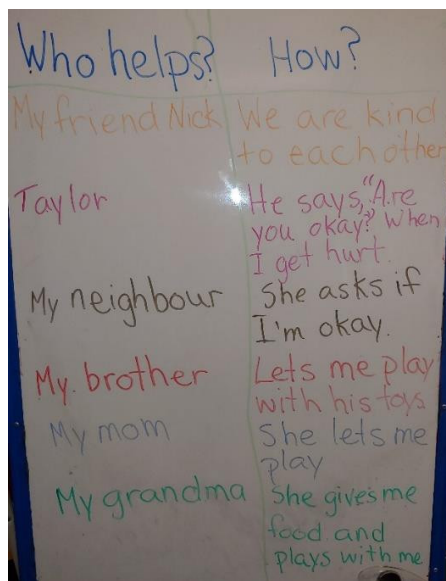 Who helps? How?
My friend Nick We are kind
to each other
Taylor He says, "Are
you okay?" when
I get hurt.
My neighbour She asks if
I'm okay.
My brother Lets me play
with his toys
My mom She lets me
play
My grandma She gives me
food and
plays with me